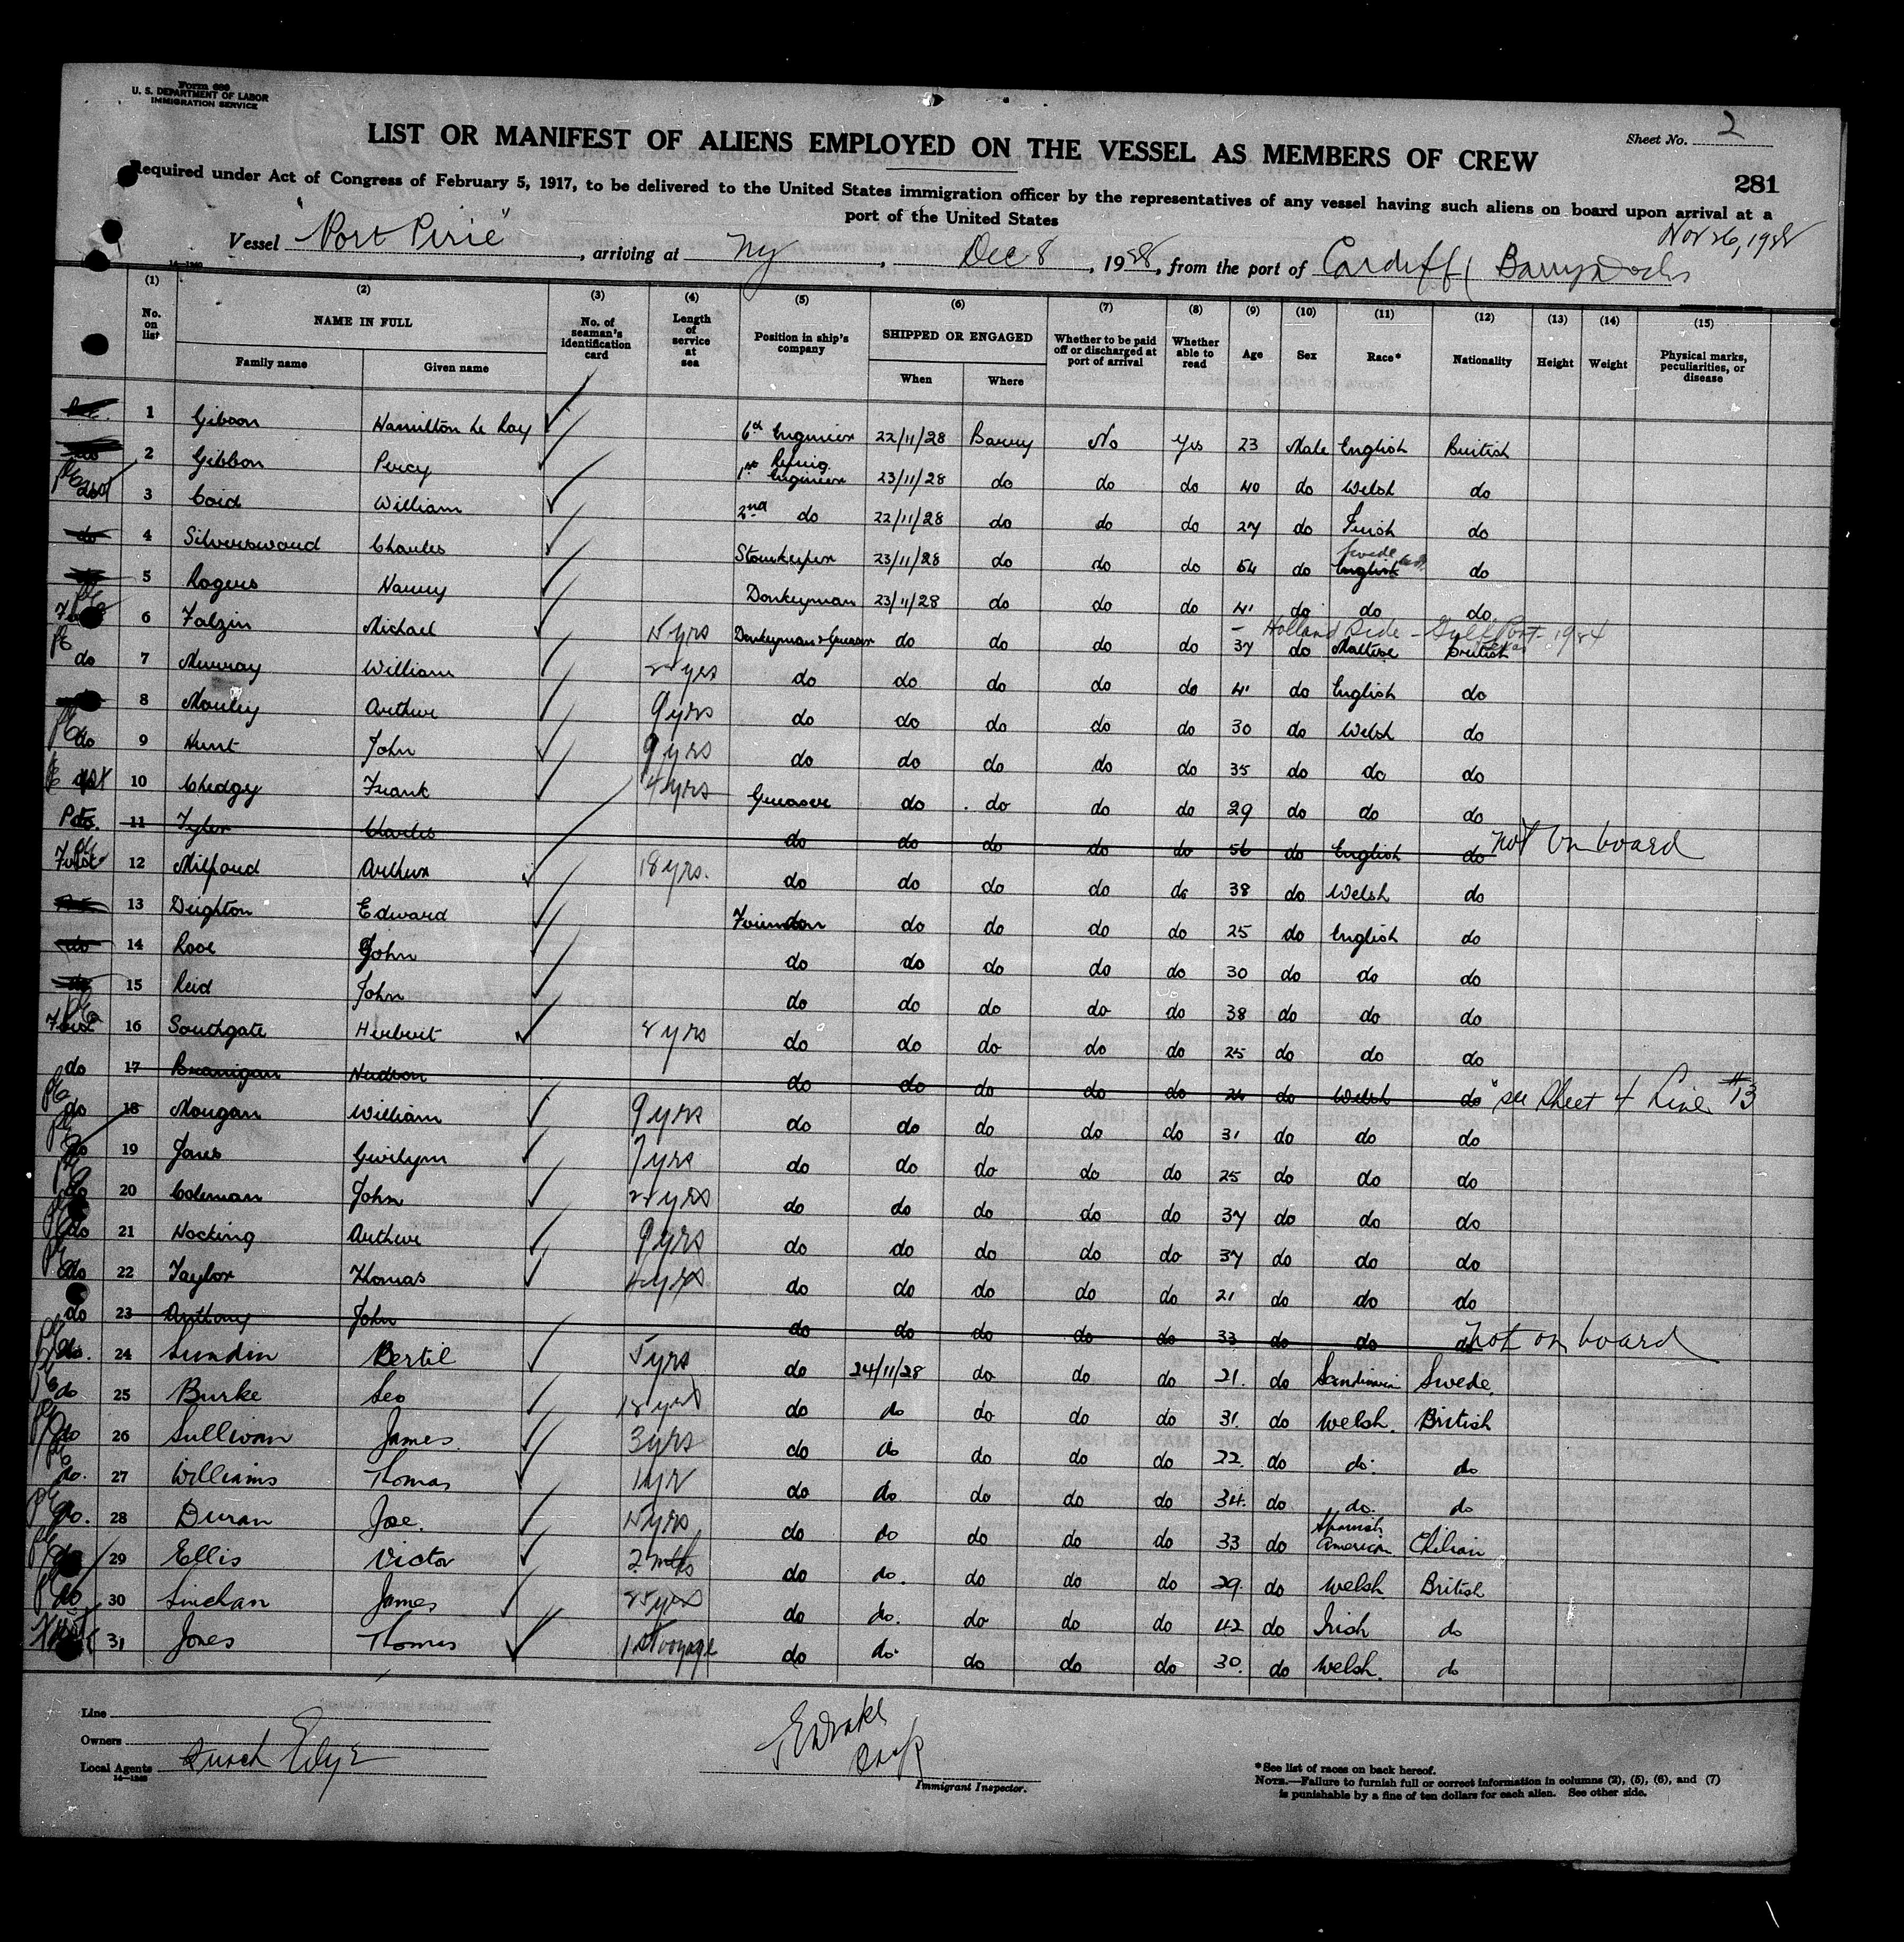 Form 689
U. S. DEPARTMENT OF LABOR
IMMIGRATION SERVICE
Sheet No. 2
LIST OR MANIFEST OF ALIENS EMPLOYED ON THE VESSEL AS MEMBERS OF CREW
281
Required under Act of Congress of February 5, 1917, to be delivered to the United States immigration officer by the representatives of any vessel having such aliens on board upon arrival at a
port of the United States
Nov 26, 1928
Vessel "Port Pirie", arriving at Ny, Dec 8, 1928, from the port of Cardiff (Barry Docks
14—1240
(1) (2) (3) (4) (5) (6) (7) (8) (9) (10) (11) (12) (13) (14) (15)
No. on list NAME IN FULL No. of seaman's identification card Length of service at sea Position in ship's company SHIPPED OR ENGAGED Whether to be paid off or discharged at port of arrival Whether able to read Age Sex Race* Nationality Height Weight Physical marks, peculiarities, or disease
Family name Given name When Where
1 Gibson Hamilton Le Roy 6th Engineer 22/11/28 Barry No Yes 23 Male English British
2 Gibbon Percy 1st Refrig. Engineer 23/11/28 do do do 40 do Welsh do
3 Coid William 2nd do 22/11/28 do do do 27 do Irish do
4 Silverswand Charles Storekeeper 23/11/28 do do do 54 do Swede English do
5 Rogers Harry Donkeyman 23/11/28 do do do 41 do do do
Holland Side - Gulf Port - 1924
6 Falzin Michael 15 yrs Donkeyman & Greaser do do do do 37 do Maltese British
do 7 Murray William 24 yrs do do do do do 41 do English do
8 Morley Arthur 9 yrs do do do do do 30 do Welsh do
do 9 Hunt John 9 yrs do do do do do 35 do do do
10 Chedgy Frank 4 yrs Greaser do do do do 29 do do do
11 Tyler Charles do do do do do 56 do English do not on board
12 Milford Arthur 18 yrs. do do do do do 38 do Welsh do
13 Deighton Edward Fireman do do do do 25 do English do
14 Rose John do do do do do 30 do do do
15 Reid John do do do do do 38 do do do
16 Southgate Herbert 8 yrs do do do do do 25 do do do
do 17 Branigan Hudson do do do do do 24 do Welsh do see Sheet 4 Line #13
do 18 Morgan William 9 yrs do do do do do 31 do do do
do 19 Jones Gwilym 7 yrs do do do do do 25 do do do
do 20 Coleman John 24 yrs do do do do do 37 do do do
do 21 Hocking Arthur 9 yrs do do do do do 37 do do do
do 22 Taylor Thomas 4 yrs do do do do do 21 do do do
do 23 Anthony John do do do do do 33 do do do not on board
do. 24 Sundin Bertil 5 yrs do 24/11/28 do do do 21. do Scandinavian Swede.
do 25 Burke Leo 18 yrs do do do do do 31. do Welsh. British
do 26 Sullivan James. 3 yrs do do do do do 22. do do. do
do. 27 Williams Thomas 1 yr do do do do do 34. do do. do
do. 28 Duran Jose. 15 yrs do do do do do 33 do Spanish American Chilian
do 29 Ellis Victor 2 mths do do. do do do 29. do Welsh British
do 30 Linehan James 25 yrs do do. do do do 42 do Irish do
31 Jones Thomas 1st voyage do do. do do do 30. do Welsh. do
Line
Owners
Local Agents Funch Edye
14—1240
Immigrant Inspector.
*See list of races on back hereof.
NOTE.—Failure to furnish full or correct information in columns (2), (5), (6), and (7)
is punishable by a fine of ten dollars for each alien. See other side.